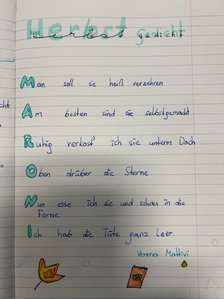 Herbst gedicht
Man soll sie heiß verzehren
Am besten sind sie selbstgemacht
Ruhig verkost' ich sie unterm Dach
Oben drüber die Sterne
Nun esse ich sie und schau in die
Ferne
Ich hab die Tüte ganz leer.
Verena Mattivi